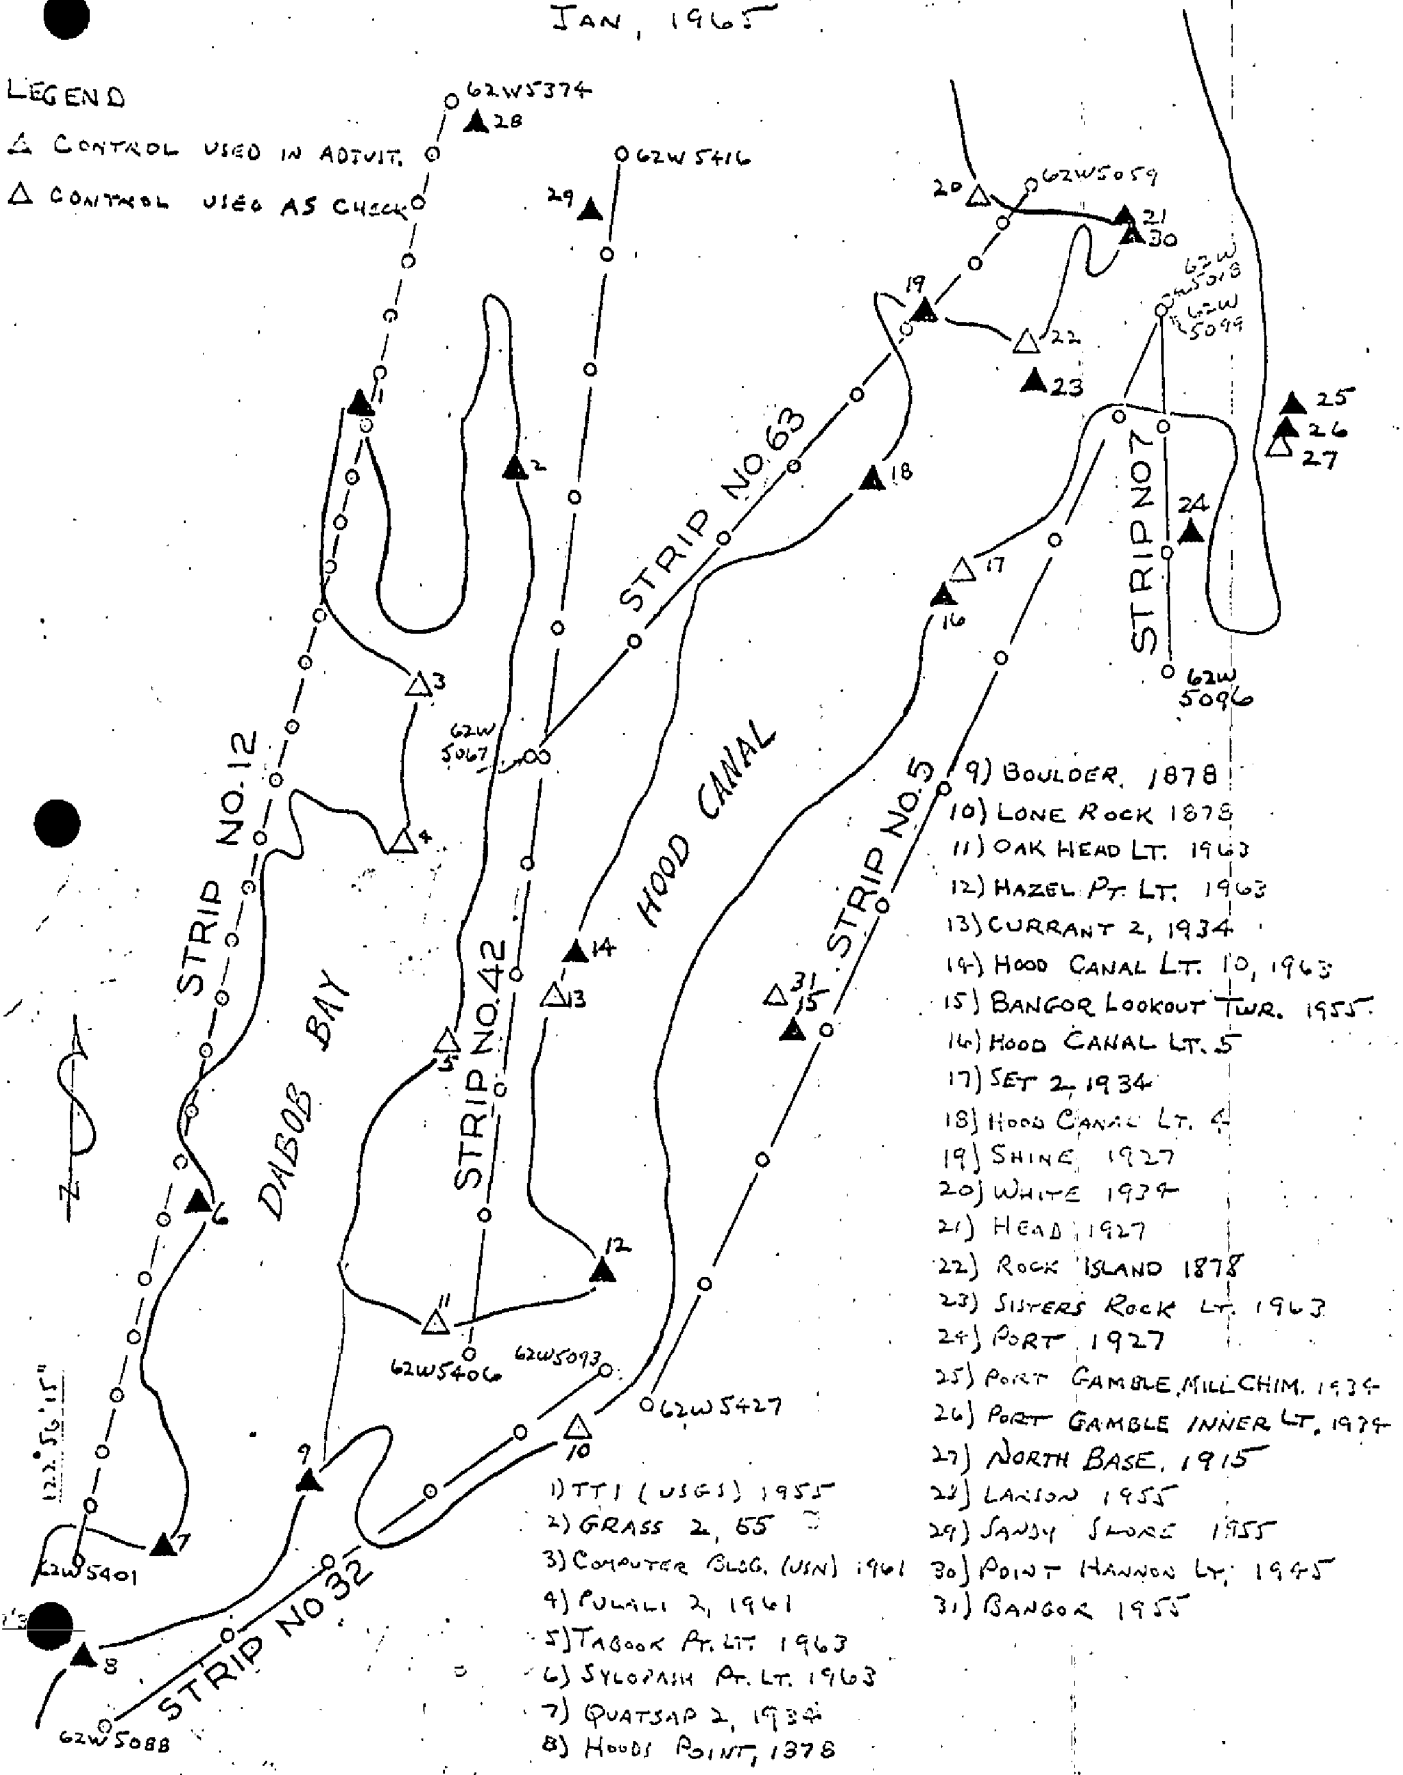 JAN, 1965
LEGEND
△ CONTROL USED IN ADJUST.
△ CONTROL USED AS CHECK
62W5374
28
62W5416
29
20
62W5059
21
30
62W
5018
62W
5099
19
22
23
1
25
26
27
2
18
STRIP NO. 63
STRIP NO 7
24
17
16
3
62W
5096
62W
5067
STRIP NO. 12
4
HOOD CANAL
STRIP NO. 5
14
13
31
15
DABOB BAY
5
STRIP NO. 42
6
12
11
62W5406
62W5093
62W5427
10
9
122° 56' 15"
7
62W5401
STRIP NO 32
8
62W5088
N
1) TT1 (USGS) 1955
2) GRASS 2, 55
3) COMPUTER BLDG. (USN) 1961
4) PULALI 2, 1961
5) TABOOK PT. LT. 1963
6) SYLOPASH PT. LT. 1963
7) QUATSAP 2, 1934
8) HOODS POINT, 1878
9) BOULDER, 1878
10) LONE ROCK 1878
11) OAK HEAD LT. 1963
12) HAZEL PT. LT. 1963
13) CURRANT 2, 1934
14) HOOD CANAL LT. 10, 1963
15) BANGOR LOOKOUT TWR. 1955
16) HOOD CANAL LT. 5
17) SET 2, 1934
18) HOOD CANAL LT. 4
19) SHINE, 1927
20) WHITE 1934
21) HEAD, 1927
22) ROCK ISLAND 1878
23) SISTERS ROCK LT. 1963
24) PORT 1927
25) PORT GAMBLE, MILL CHIM. 1934
26) PORT GAMBLE INNER LT. 1934
27) NORTH BASE, 1915
28) LARSON 1955
29) SANDY SHORE 1955
30) POINT HANNON LT, 1945
31) BANGOR 1955